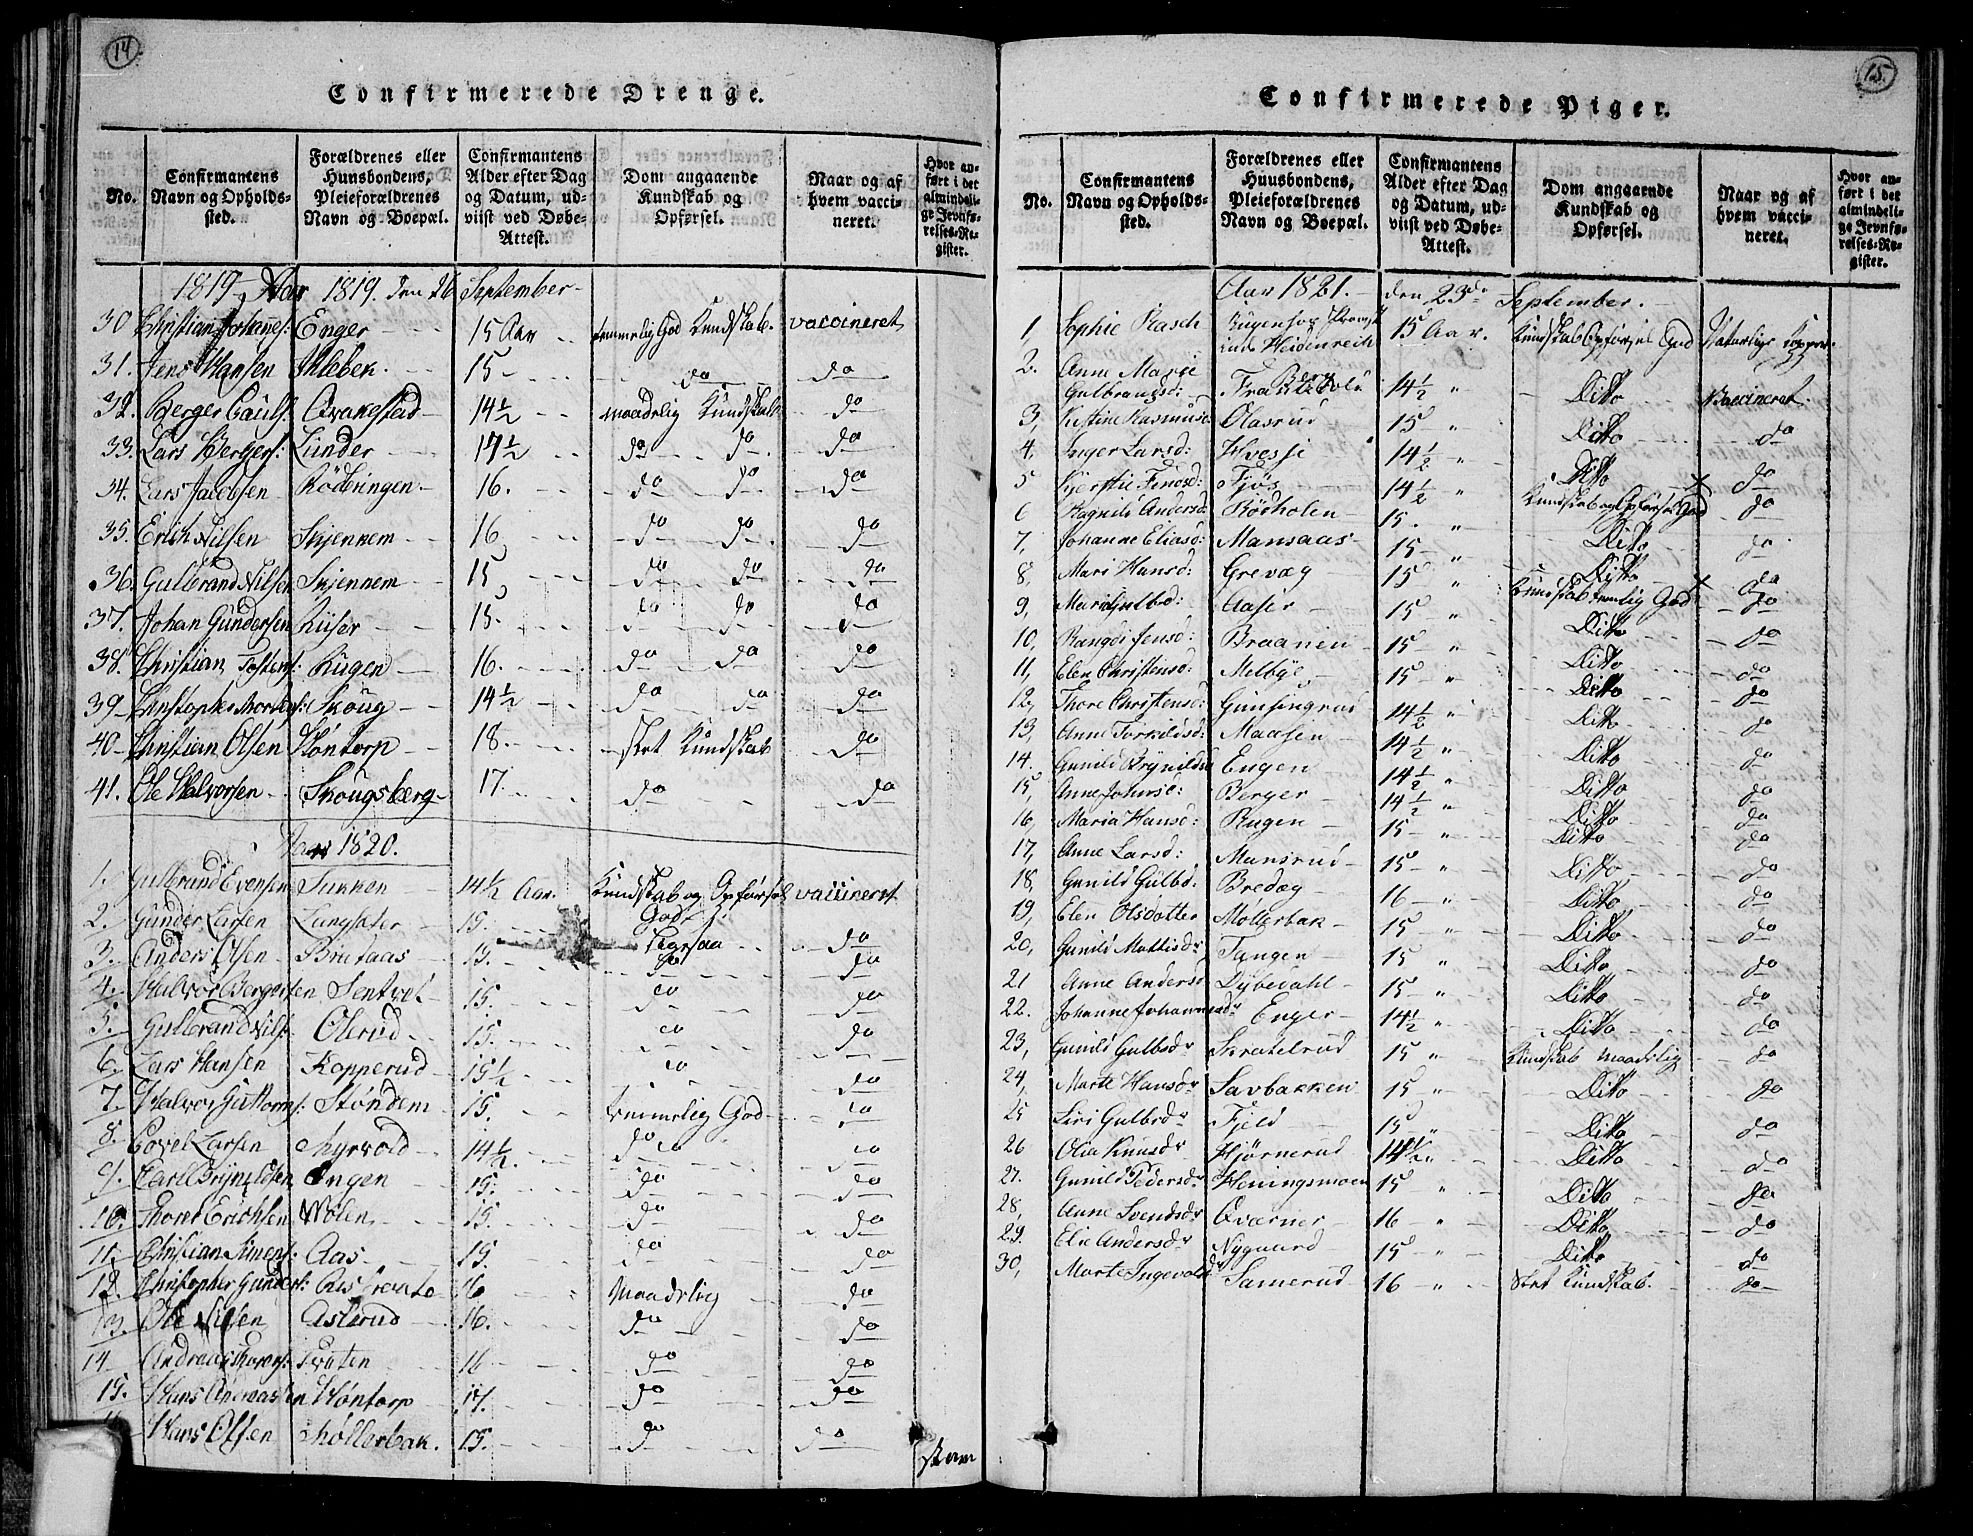 14
Confirmerede Drenge.
No. Confirmantens Navn og Opholdssted. Forældrenes eller Huusbondens, Pleieforældrenes Navn og Boepæl. Confirmantens Alder efter Dag og Datum, udviist ved Døbe-Attest. Dom angaaende Kundskab og Opførsel. Naar og af hvem vaccineret. Hvor anført i det almindelige Jevnførelses-Register.
1819 Aar 1819. den 26 September
30 Christian Johannes: Enger 15 Aar temmelig God Kundskab. vaccineret
31. Jens Hansen 15 do do
32. Berger Pauls: Qvakestad 14½ maadelig Kundskab do
33. Lars Bergers: Lunder 17½ do do do
34. Lars Jacobsen Rödbringen 16. do do do
35. Erich Nilsen Skjennem 16 do do do
36. Gulbrand Nilsen Skjennem 15 do do do
37. Johan Gundersen Kiiser 15. do do do
38. Christian Tostens: Rugen 16. do do do
39 Christopher Skoug 14½ do do do
40 Christian Olsen Höntorp 18. slet Kundskab do
41. Ole Halvorsen Skougsberg 17. do do
Aar 1820.
1. Gulbrand Evensen 14½ Aar. Kundskab og Opførsel vaccineret
2. Gunder Larsen Langsæter 15. God
3. Anders Olsen 15. ligesaa do
4. Halvor Bergersen Sentvet 15. do do
5. Gulbrand Nils: Olerud 15. do do
6. Lars Hansen Kopperud 15½ do do
7. Halvor Guttorms: Stöndem 15. temmelig God do
8. Povel Larsen Myrvold 14½ do do
9. Carl Brynildsen Engen 15. do do
10. Thorer Erichsen Wolen 15. do do
11. Christian Simens: Aas 15. do do
12. Christopher Gunders: 16 Maadelig do
13. Ole Nilsen Asterud 16. do do
14 Andreas Thorers: Braten 16 do do
15. Hans Andreassen Höntorp 17. do do
Hans Olsen Möllerbak. 15. do do
15.
Confirmerede Piger.
No. Confirmantens Navn og Opholdssted. Forældrenes eller Huusbondens, Pleieforældrenes Navn og Boepæl. Confirmantens Alder efter Dag og Datum, udviist ved Døbe-Attest. Dom angaaende Kundskab og Opførsel. Naar og af hvem vaccineret. Hvor anført i det almindelige Jevnførelses-Register.
Aar 1821. den 23de September.
1, Sophie Rasch Heidenreich 15 Aar. Kundskab Opførsel God Naturlige Kopper.
2. Anne Marie Gulbrandsd: 14½ " Ditto Vaccineret.
3, Kistine Rasmusd: Olasrud 15 " Ditto do
4, Inger Larsd: Hvessi 14½ " Ditto do
5 Kjerstie Finosd: Fjös 14½ " Kundskab og Opførsel God do
6 Ragnild Andersd: Rödholen 15. " Ditto do
7, Johanne Eliasd: Mansaas 15 " Ditto do
8, Mari Hansd: Grevæg 15 " Kundskab temlig God do
9, Maria Gulbrd: Aaser 15 " Ditto do
10, Rangdi Jensd: Braanen 15 " Ditto do
11, Elen Christensd: Melbye 15 " Ditto do
12, Thore Christensd: Gunsingrud 14½ " Ditto do
13, Anne Torkildsd: Maasen 14½ " Ditto do
14. Gunild Brynildsd Engen 14½ " Ditto do
15, Anne Johnsd: Berger 14½ " Ditto do
16, Maria Hansd: Rugen 15 " Ditto do
17, Anne Larsd: Mansrud 15 " Ditto do
18, Gunild Gulbd: Bredæg 16 " Ditto do
19, Elen Olsdotter Möllerbak 15 " Ditto do
20, Gunild Mattisdr Tangen 15 " Ditto do
21 Anne Andersd Dybedahl 15 " Ditto do
22. Johanne Johannesdr Enger 14½ " Ditto do
23, Gunild Gulbsdr Skratelrud 15 " Kundskab maadelig do
24, Marte Hansdr Savbakken 15 " Ditto do
25 Siri Gulbrdr Fjeld 15 " Ditto do
26 Olia Knusdr Hjörnerud 14½ " Ditto do
27. Gunild Pedersdr Heningsmoen 15 " Ditto do
28, Anne Svendsdr Qværner 16 " Ditto do
29. Elie Andersdr Nygaard 15 " Ditto do
30, Marte Ingevoldsdr Samerud 16 " Slet Kundskab. do